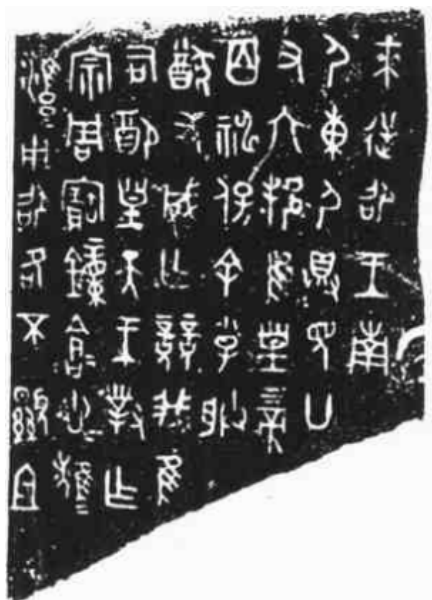 來逆卲王南
尸東尸具見廿
又六邦隹皇上帝
百神保余小子朕
猷又成亡競我隹
司配皇天王對乍
宗周寶鐘倉悤
雝用卲各不顯且